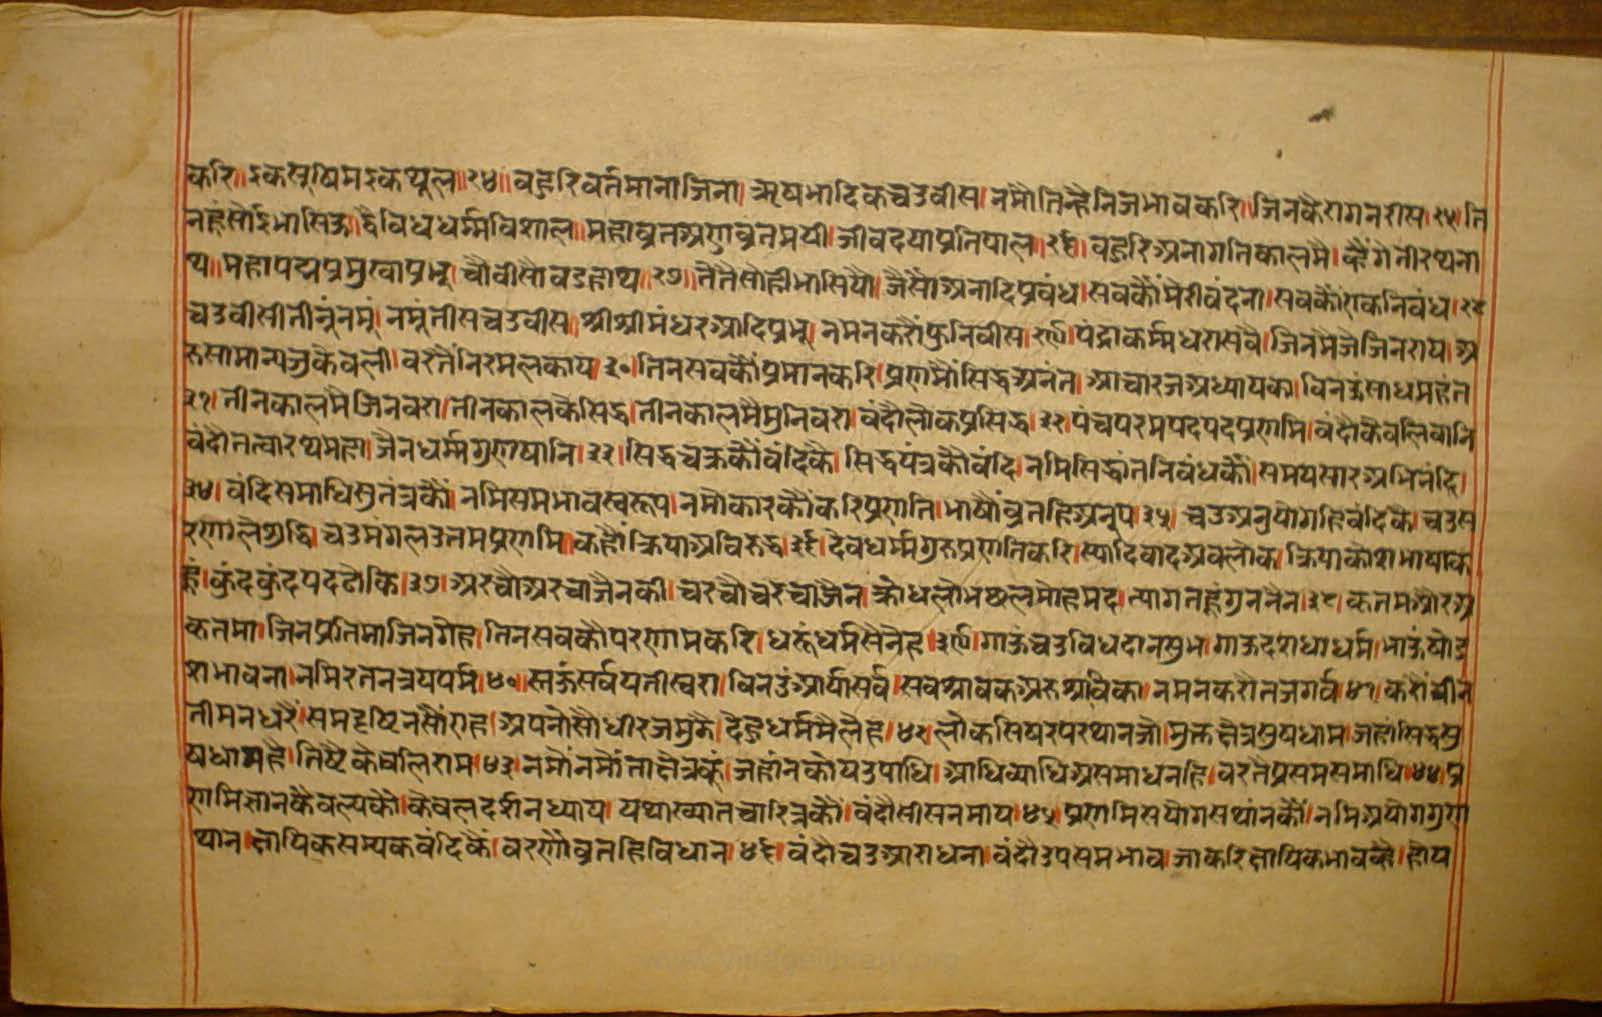 करि॥इकसुषिमइकथूल॥२४॥बहुरिवर्तमानाजिना॥ऋषभादिकचउवीस॥नमौतिन्हैनिजभावकरि॥जिनकैरागनरीस॥२५॥ति
नहूंसोईभासिऊ॥द्वैविधधर्मविशाल॥महाव्रतअणुव्रतमयी॥जीवदयाप्रतिपाल॥२६॥बहुरिअनागतिकालमै॥ह्वैंगेतीरथना
थ॥महापद्मप्रमुखाप्रभू॥चौवीसौवडहाथ॥२७॥तेतैसोहीभासियौ॥जैसौंअनादिप्रबंध॥सबकौंमेरीवंदना॥सबकौंएकनिबंध॥२८
चउवीसीतीनूंनमूं॥नमूंतीसचउवीस॥श्रीश्रीमंधरआदिप्रभू॥नमनकरौंफुनिवीस॥२९॥पंद्राकर्म्मधरासवै॥जिनमैजेजिनराय॥अ
रुसामान्यजुकेवली॥वरतैंनिरमलकाय॥३०॥तिनसबकौंप्रमानकरि॥प्रणमौंसिद्धअनंत॥आचारजअध्यापक॥विनऊंसाधमहंत
३१॥तीनकालमैजिनवरा॥तीनकालकेसिद्ध॥तीनकालमैमुनिवरा॥वंदौलोकप्रसिद्ध॥३२॥पंचपरमपदपदप्रणमि॥वंदौकेवलिवानि
वंदौतत्वारथमहा॥जैनधर्म्मगुणषानि॥३३॥सिद्धचक्रकौंवंदिकै॥सिद्धयंत्रकौवंदि॥नमिसिद्धांतनिबंधकौं॥समयसारअभिनंदि॥
३४॥वंदिसमाधिसुतंत्रकौं॥नमिसमभावस्वरूप॥नमोकारकौंकरिप्रणति॥भाषौंव्रतहिअनूप॥३५॥चउअनुयोगहिवंदिकै॥चउस
रणालेशुद्धि॥चउमंगलउतमप्रणमि॥कहौंक्रियाअविरुद्ध॥३६॥देवधर्म्मगुरुप्रणतिकरि॥स्यादिवादअवलोक॥क्रियाकोशभाषाक
हूं॥कुंदकुंदपदढोकि॥३७॥अरचौअरचाजैनकी॥चरचौचरचाजैन॥क्रोधलोभछलमोहमद॥त्यागतहूंगुनबैन॥३८॥कतमअौरअ
कतमा॥जिनप्रतिमाजिनगेह॥तिनसबकौपरणामकरि॥धरूंधर्मसैनेह॥३९॥गाऊंचउविधदानसुभ॥गाऊदशधाधर्म॥भाऊंषोड
शभावना॥नमिरतनत्रयपर्म॥४०॥स्तऊंसर्वयतीस्वरा॥विनउंआर्यासर्व॥सवश्रावकअरुश्राविका॥नमनकरौतजगर्व॥४१॥करौवीन
तीमनधरै॥समदृष्टिनसौंएह॥अपनोसौधीरजमुझै॥देहुधर्ममैलेह॥४२॥लोकसिषरपरथानजो॥मुक्तक्षेत्रसुषधाम॥जहांसिद्धसु
षधामहै॥तिष्टैकेवलिराम॥४३॥नमौंनमौंताक्षेत्रकूं॥जहांनकोयउपाधि॥आधिव्याधिअसमाधनहि॥वरतैप्रसमसमाधि॥४४॥प्र
णमिज्ञानकैवल्यकौ॥केवलदर्शनध्याय॥यथाख्यातचारित्रकौं॥वंदौसीसनमाय॥४५॥प्रणमिसयोगसथांनकौं॥नमिअयोगगुण
थान॥क्षायिकसम्यकवंदिकैं॥वरणौव्रतहिविधान॥४६॥वंदौचउआराधना॥वंदौउपसमभाव॥जाकरिक्षायिकभावह्वै॥होय